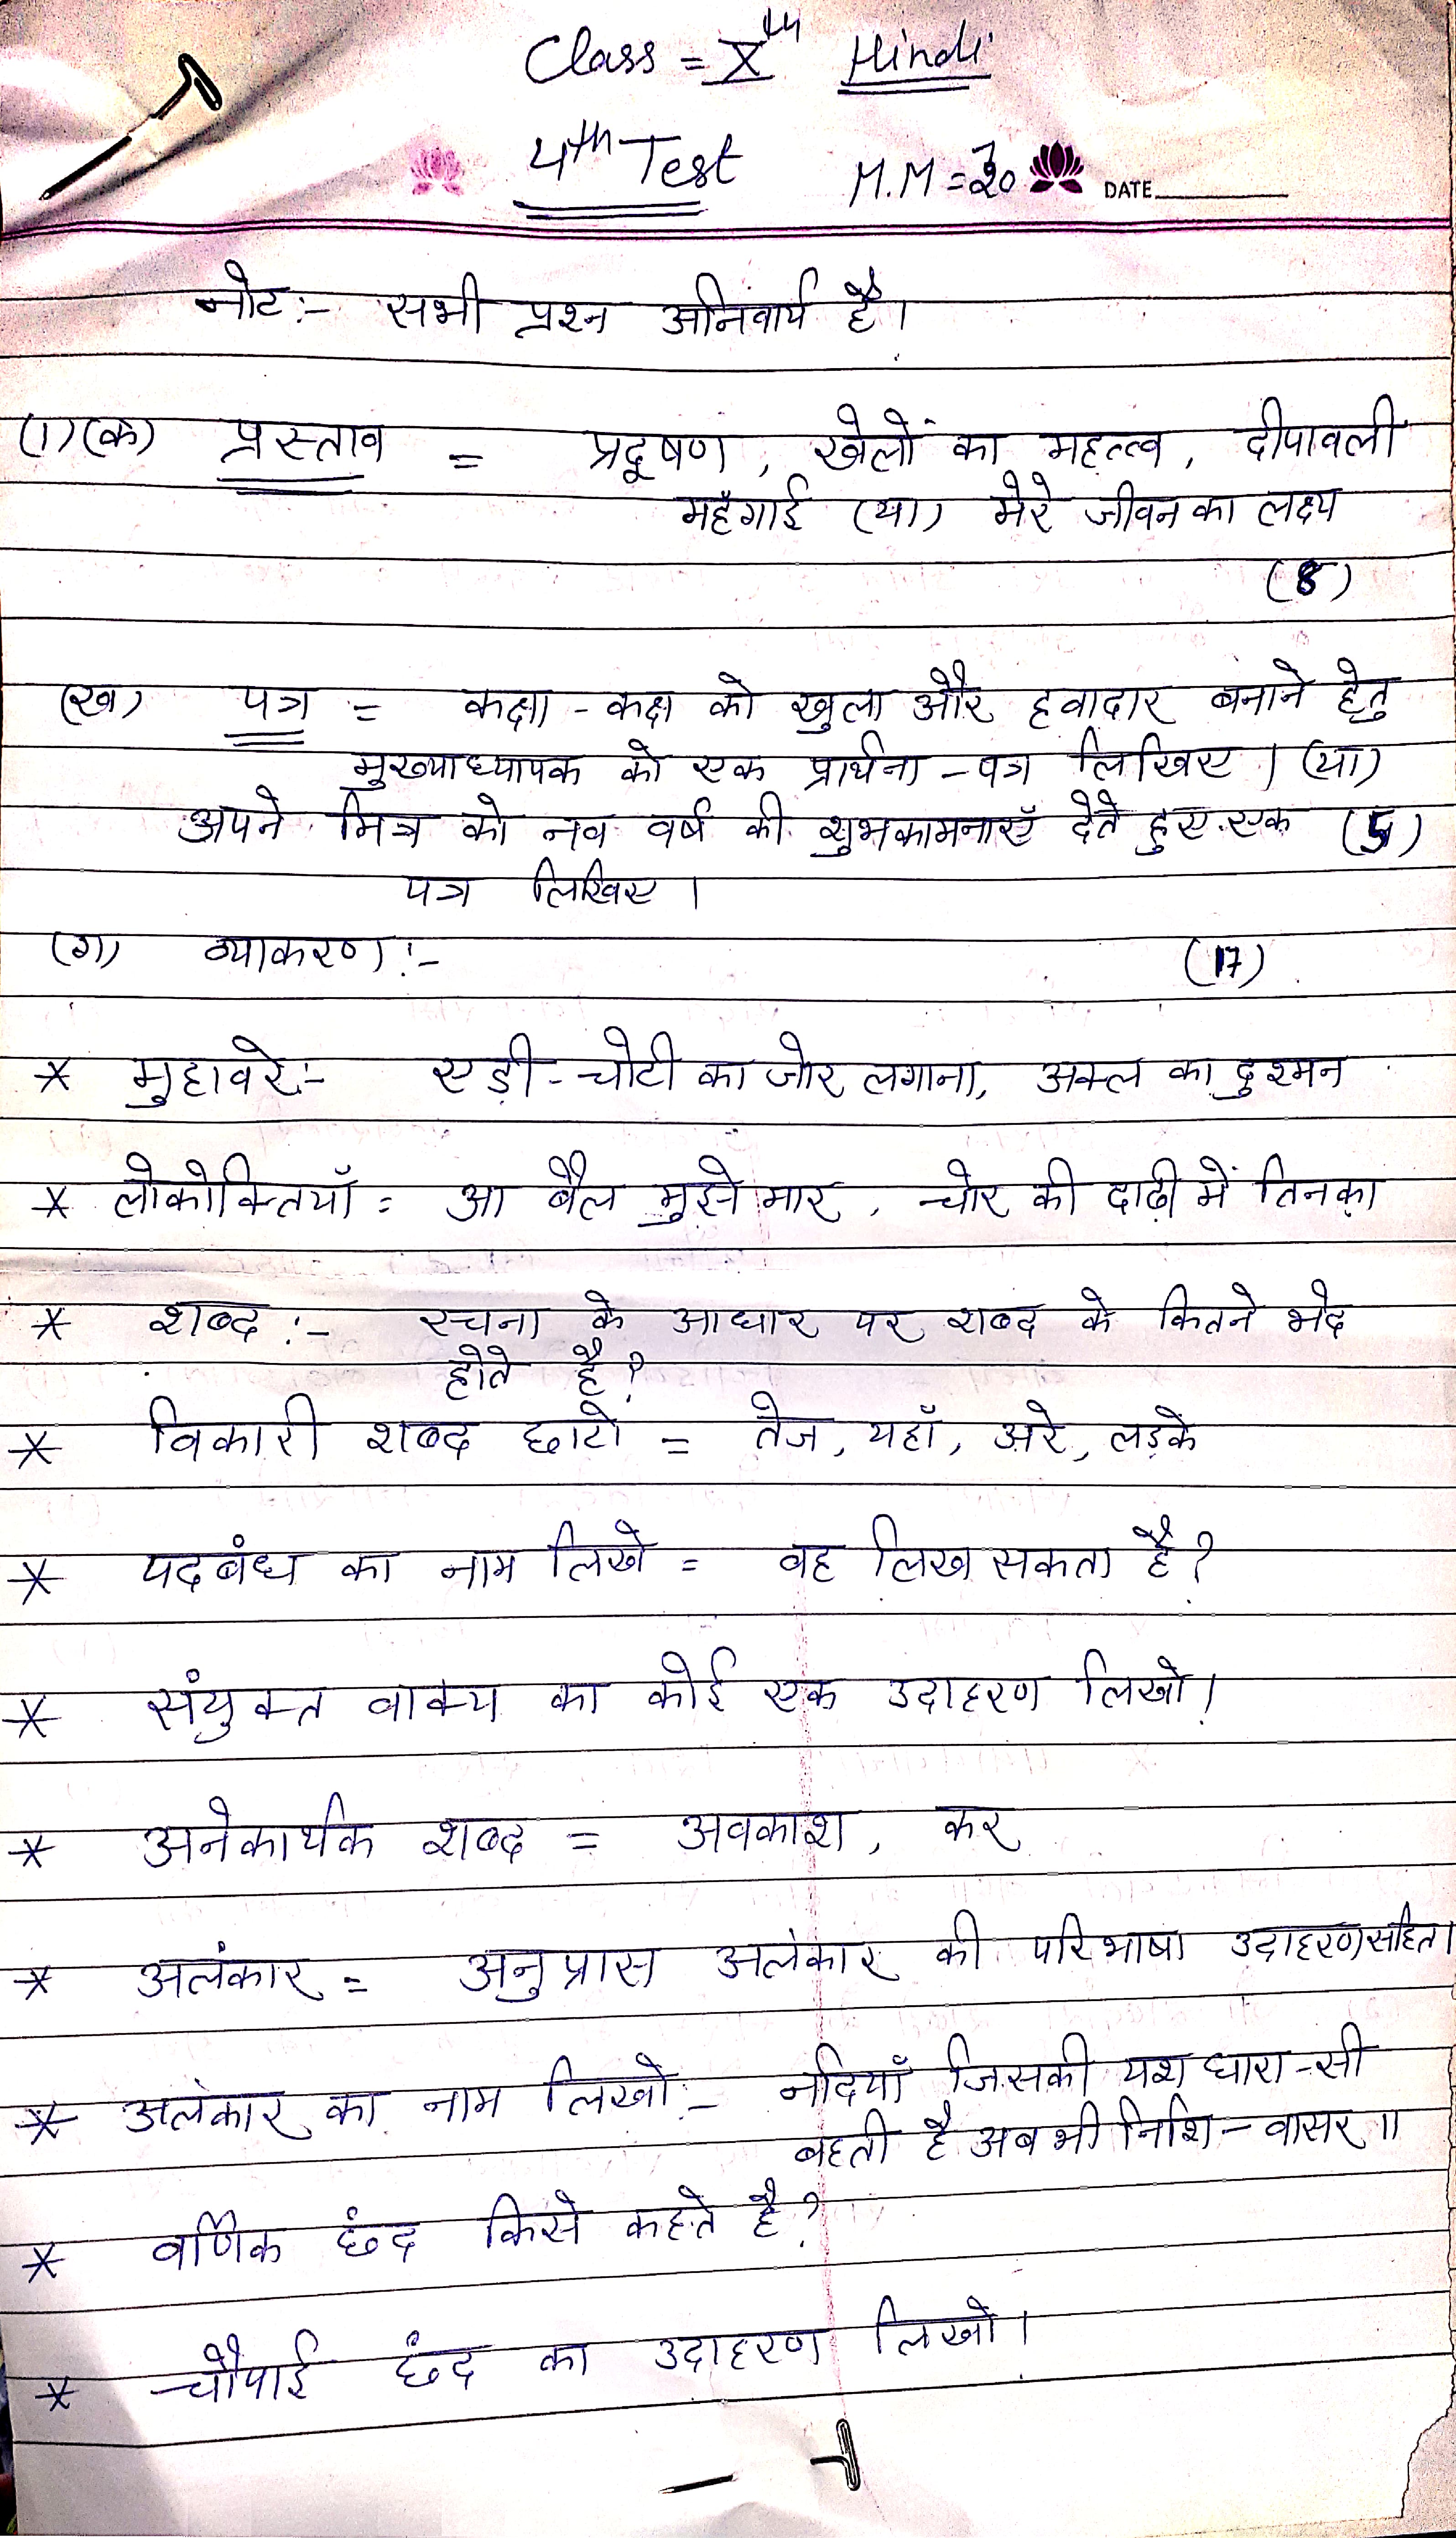 Class = Xth Hindi
4th Test M.M = 30 DATE
नोट:- सभी प्रश्न अनिवार्य है।
(1)(क) प्रस्ताव = प्रदूषण, खेलों का महत्त्व, दीपावली
महँगाई (या) मेरे जीवन का लक्ष्य
(8)
(ख) पत्र = कक्षा-कक्ष को खुला और हवादार बनाने हेतु
मुख्याध्यापक को एक प्रार्थना-पत्र लिखिए। (या)
अपने मित्र को नव वर्ष की शुभकामनाएँ देते हुए एक (5)
पत्र लिखिए।
(ग) व्याकरण:- (17)
* मुहावरे:- एड़ी-चोटी का जोर लगाना, अक्ल का दुश्मन
* लोकोक्तियाँ = आ बैल मुझे मार, चोर की दाढ़ी में तिनका
* शब्द:- रचना के आधार पर शब्द के कितने भेद
होते है?
* विकारी शब्द छाटो = तेज, यहाँ, अरे, लड़के
* पदबंध का नाम लिखे = वह लिख सकता है?
* संयुक्त वाक्य का कोई एक उदाहरण लिखो।
* अनेकार्थक शब्द = अवकाश, कर
* अलंकार = अनुप्रास अलंकार की परिभाषा उदाहरण सहित।
* अलंकार का नाम लिखो:- नदियाँ जिसकी यश धारा-सी
बहती है अब भी निशि-वासर॥
* वर्णिक छंद किसे कहते है?
* चौपाई छंद का उदाहरण लिखो।